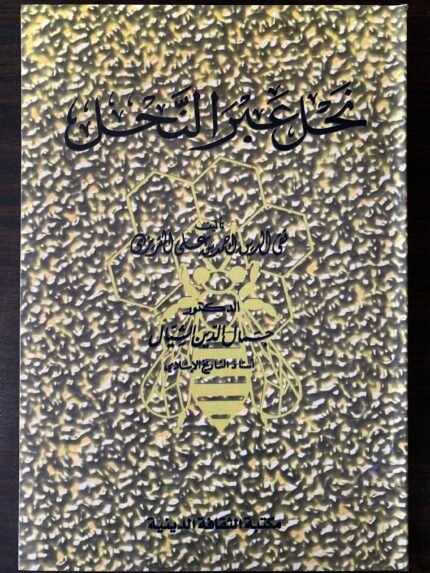 نحل عبر النَّحل
تأليف
تقي الدين احمد بن علي المقريزي
الدكتور
جمال الدين الشيال
(أستاذ التاريخ الإسلامي)
مكتبة الثقافة الدينية